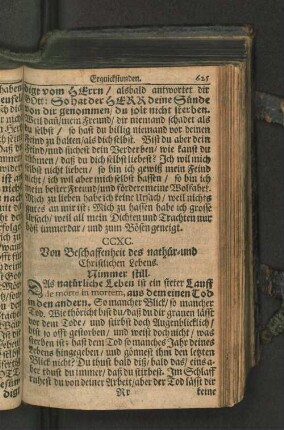 Erquickstunden. 625
digt vom HErrn / alsbald antwortet dir
GOtt: So hat der HERR deine Sünde
von dir genommen / du solt nicht sterben.
Weil dañ / mein Freund / dir niemand schadet als
du selbst / so hast du billig niemand vor deinen
Feind zu halten / als dich selbst. Bist du aber dein
Feind / und suchest dein Verderben / wie kanst du
rühmen / daß du dich selbst liebest? Ich wil mich
selbst nicht lieben / so bin ich gewiß mein Feind
nicht / ich wil aber mich selbst hassen / so bin ich
mein bester Freund / und fördere meine Wolfahrt.
Mich zu lieben habe ich keine Ursach / weil nichts
gutes an mir ist: Mich zu hassen habe ich grosse
Ursach / weil all mein Dichten und Trachten nur
böß immerdar / und zum Bösen geneigt.
CCXC.
Von Beschaffenheit des nathür- und
Christlichen Lebens.
Nimmer still.
DAs natürliche Leben ist ein steter Lauff
de morte in mortem, aus dem einen Tod
in den andern. So mancher Blick / so mancher
Tod. Wie thöricht bist du / daß du dir grauen läßt
vor dem Tode / und stirbst doch Augenblicklich /
bist so offt gestorben / und weist doch nicht / was
sterben ist: hast dem Tod so manche Jahr deines
Lebens hingegeben / und gönnest ihm den letzten
Blick nicht? Du thust bald diß / bald das / eins a-
ber thust du immer / daß du stirbest. Im Schlaff
ruhest du von deiner Arbeit / aber der Tod läßt dir
Rr keine